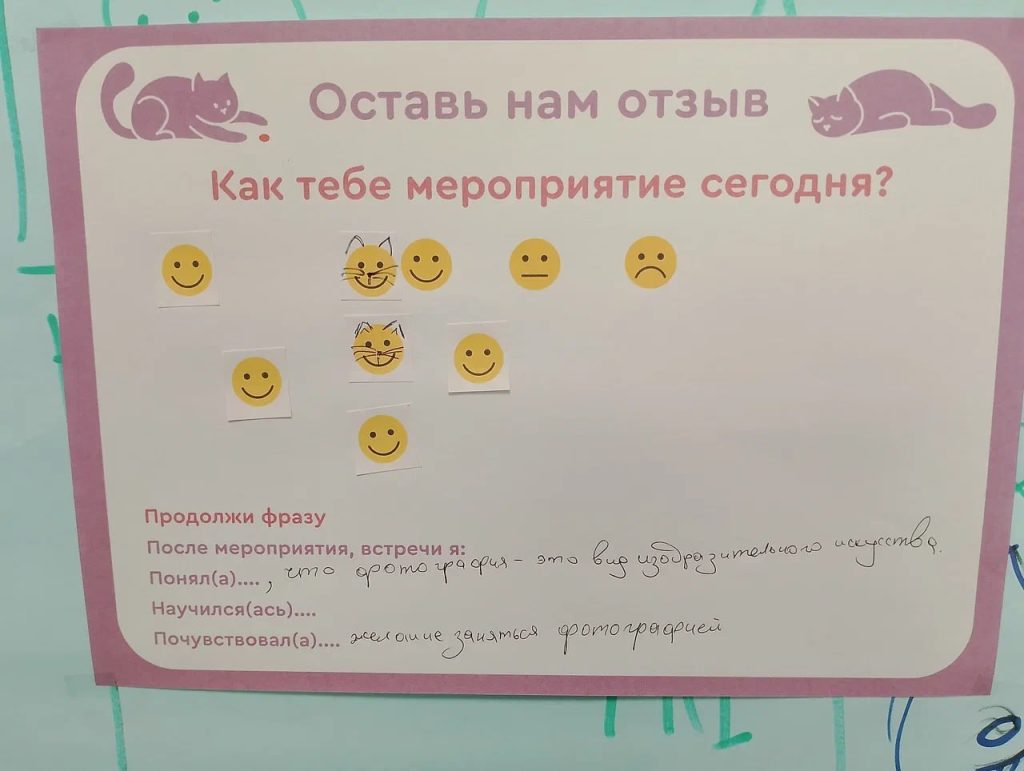 Оставь нам отзыв
Как тебе мероприятие сегодня?
Продолжи фразу
После мероприятия, встречи я:
Понял(а)...., что фотография - это вид изобразительного искусства.
Научился(ась)....
Почувствовал(а).... желание заняться фотографией